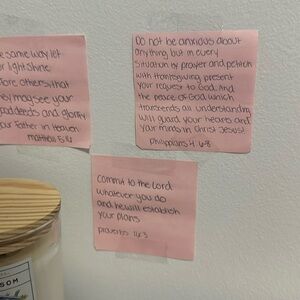 e same way let
r light shine
fore others, that
hey may see your
ood deeds and glorify
our Father in Heaven
matthew 5:16
Do not be anxious about
anything but in every
situation by prayer and petition
with thanksgiving, present
your request to God. And
the peace of God which
transcends all understanding
will guard your hearts and
your minds in Christ Jesus!
Philippians 4 6-8
Commit to the Lord
whatever you do
and he will establish
your plans
proverbs 16:3
SOM